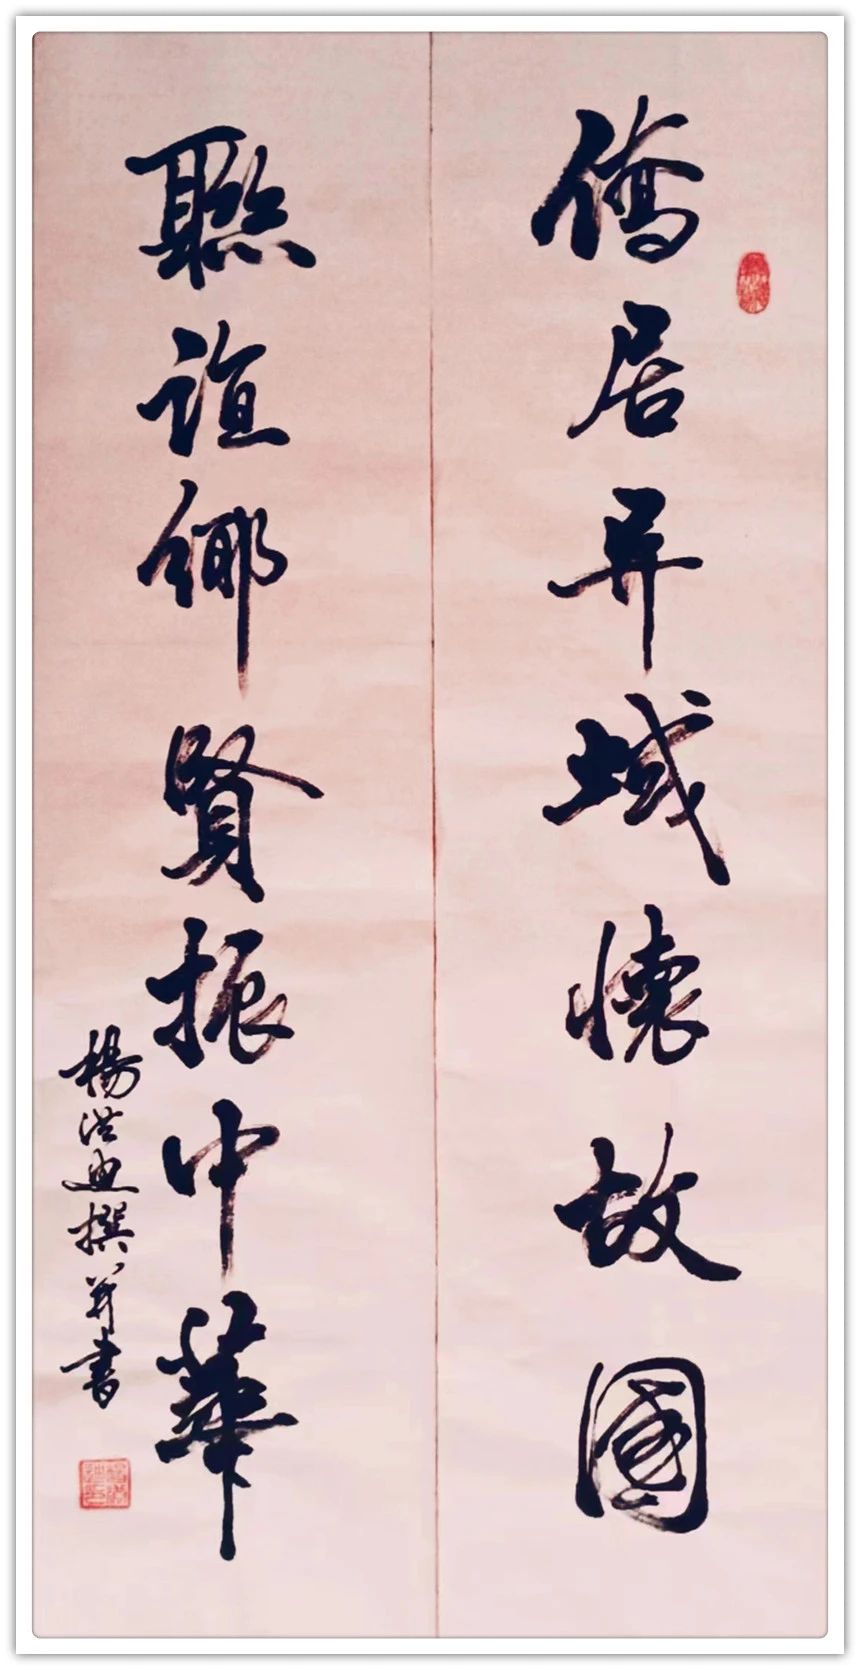 僑居异域懷故國
聯誼鄉賢振中華
楊洪迪撰并書